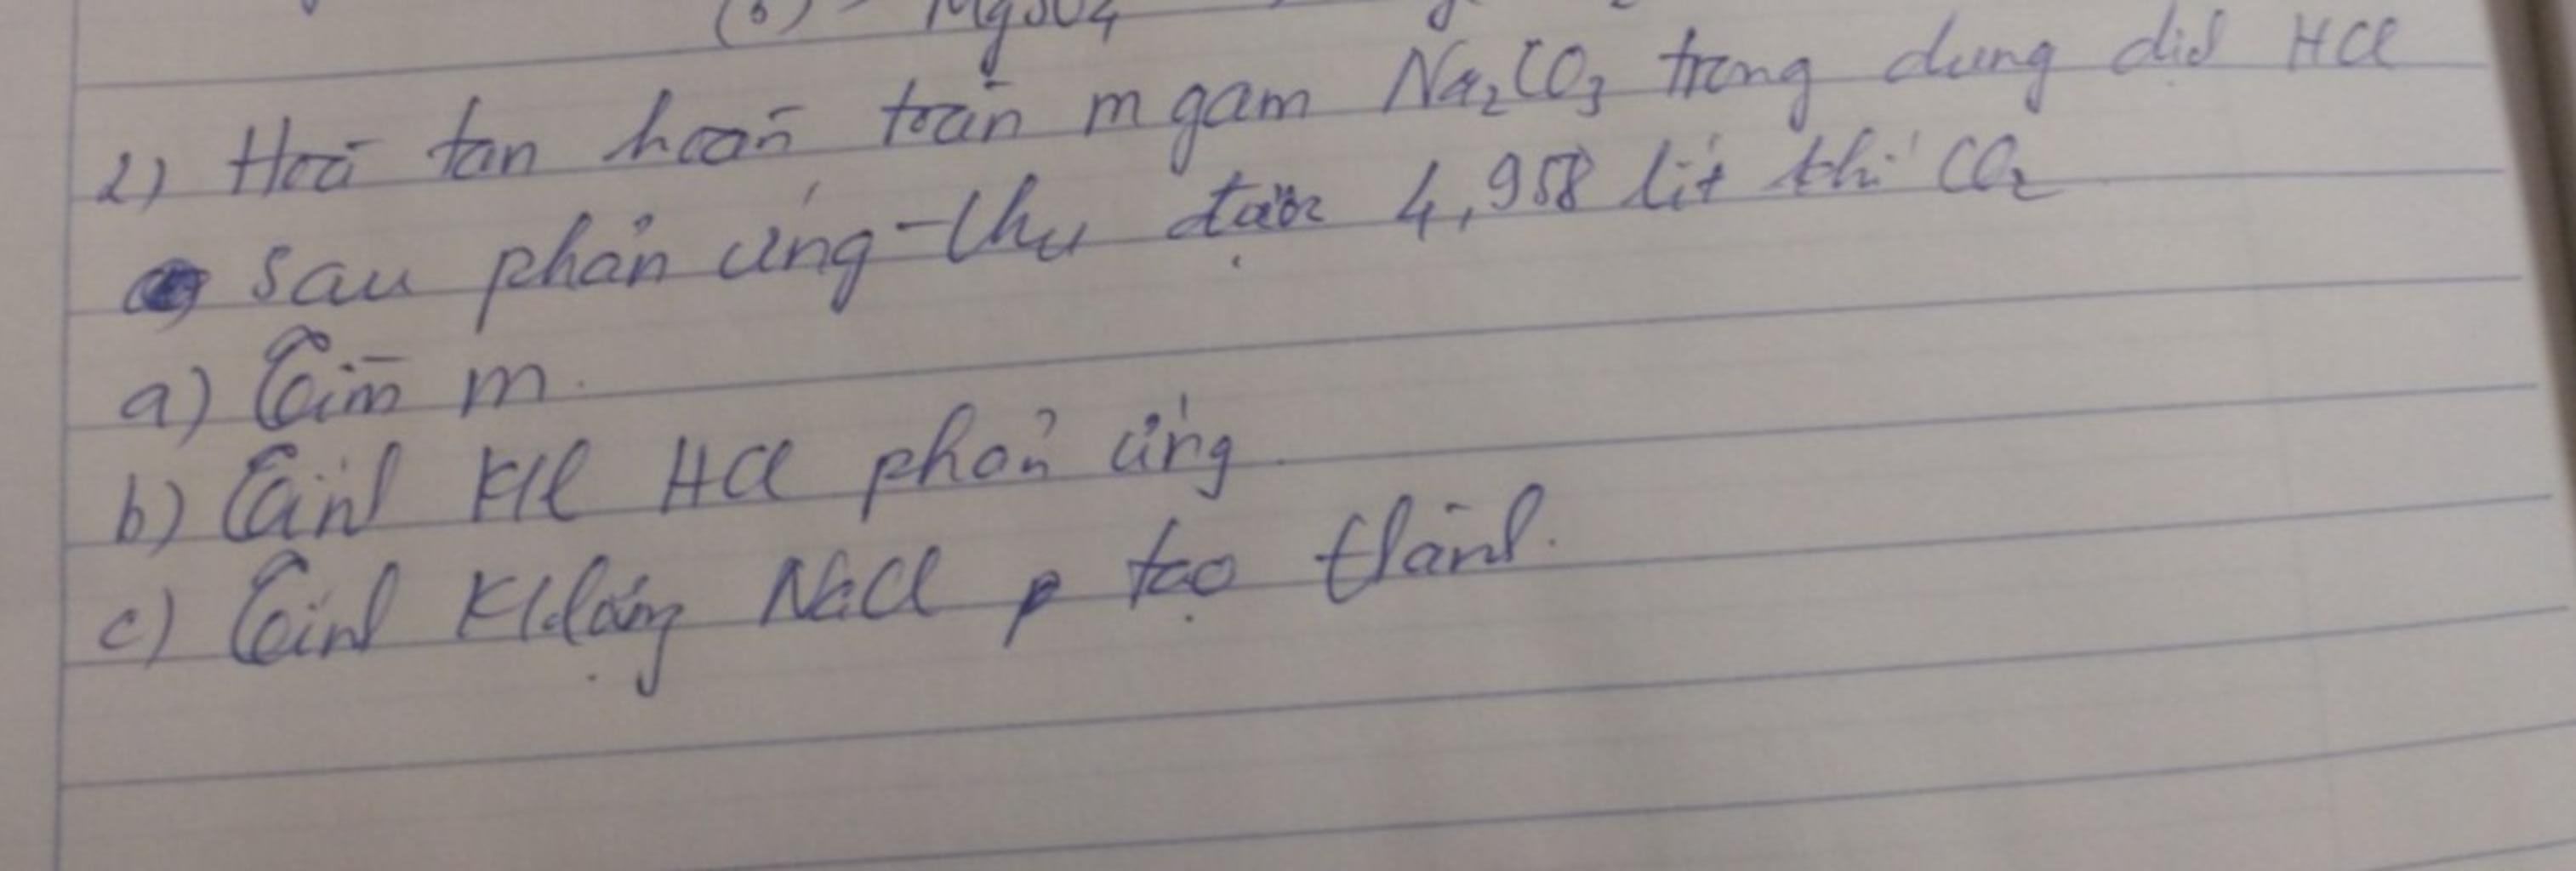 (6) - MgSO4
2) Hoà tan hoàn toàn m gam Na₂CO₃ trong dung dịch HCl
sau phản ứng thu được 4,958 lít khí CO₂
a) Tìm m.
b) Tính Kl HCl phản ứng
c) Tính Khlượng NaCl tạo thành.